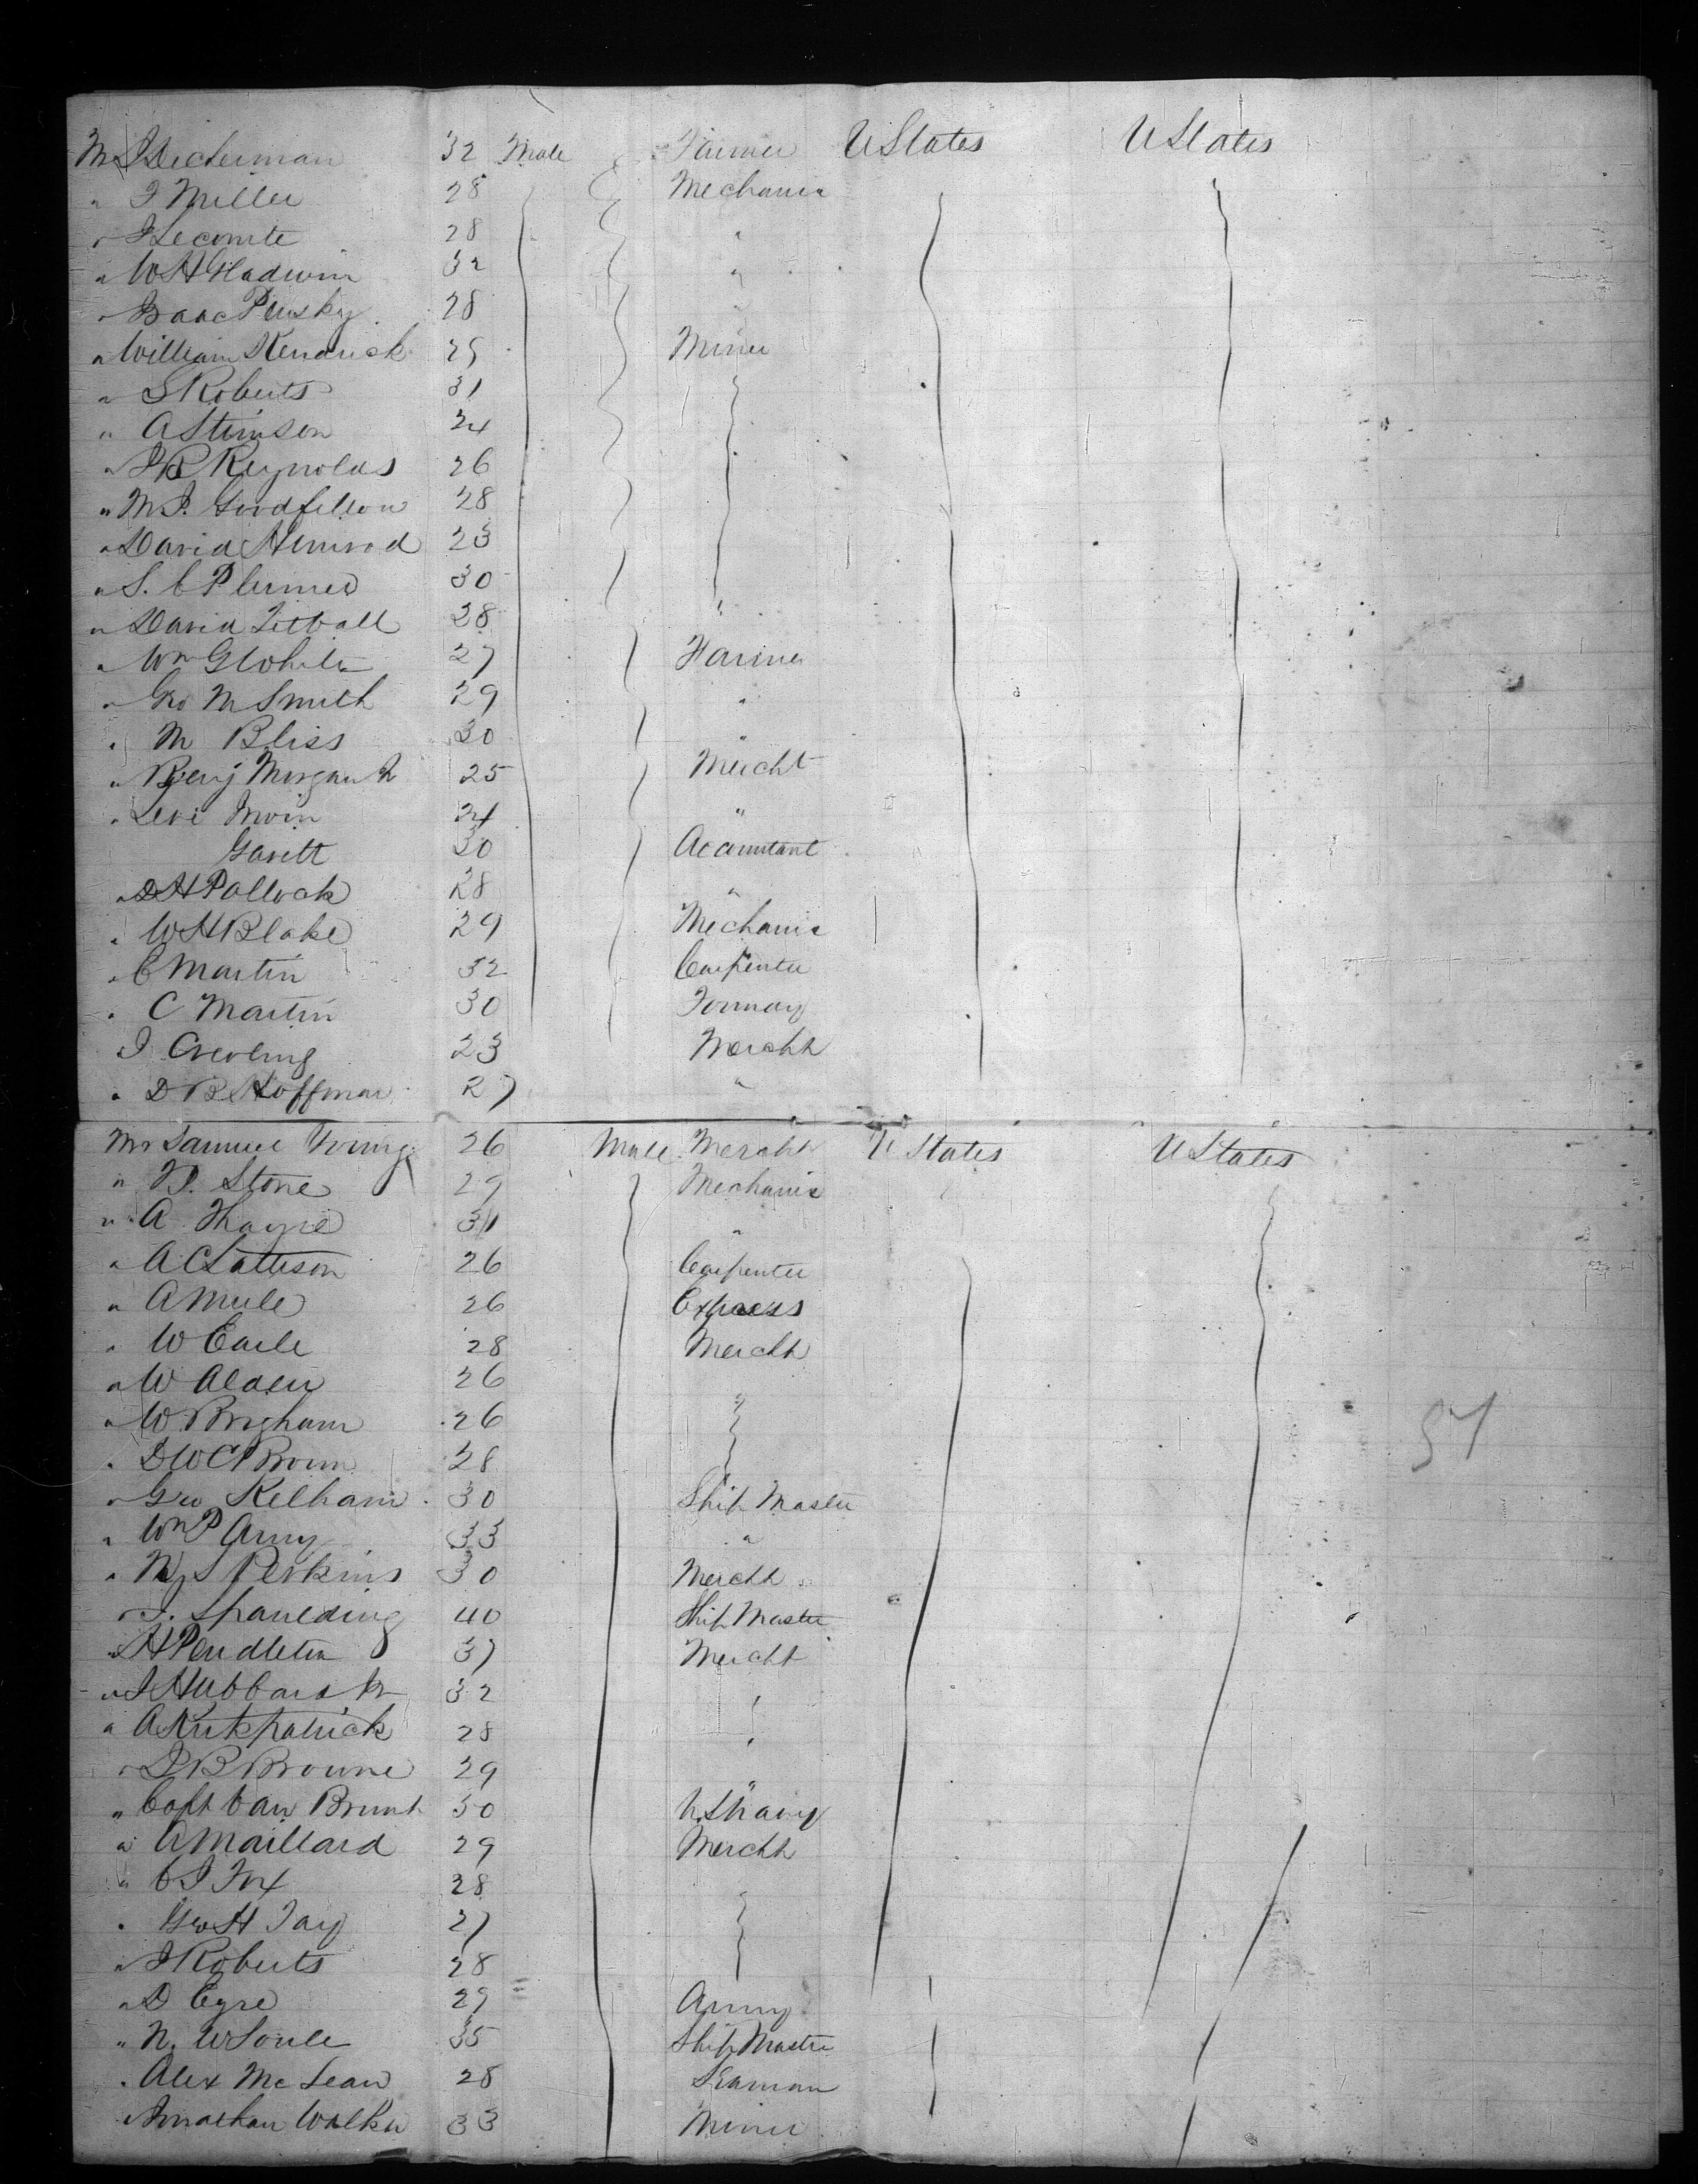 Mr J Dickerman 32 Male Farmer U States U States
" J Miller 28 Mechanic
" J Lecomte 28 "
" W H Hadwin 32 "
" Isaac Pensky 28 "
" William Kendrick 25 Miner
" S Roberts 31
" A Stimson 24
" J B Reynolds 26
" M J. Goodfellow 28
" David Nimrod 23
" S. C Plumer 30
" David Titball 28 "
" Wm G White 27 Farmer
" Geo M Smith 29 "
" M Bliss 30 "
" Benj Morgan Jr 25 Mercht
" Levi Irwin 24 "
Gavitt 30 Accountant
" D H Pollock 28 "
" W H Blake 29 Mechanic
" E Martin 32 Carpenter
" C Martin 30
J Creveling 23 Mercht
" D B Hoffman 27 "
Mr Samuel Young 26 Male Mercht U States U States
" J. Stone 29 Mechanic
" A Thayre 31 "
" A C Lattison 26 Carpenter
" A Mule 26 Express
" W Earle 28 Mercht
" W Alden 26 "
" W Brigham 26
" D W C Brown 28
" Geo Kelham 30 Ship Master
" Wm P Amy 33 "
" Perkins 30 Mercht
" J. Spaulding 40 Ship Master
" H Pendleton 37 Mercht
" J Hubbard Jr 32
" A Kirkpatrick 28
" J B Browne 29 "
" Capt Van Brunt 50 U.S Navy
" A Maillard 29 Mercht
" C J Fox 28
" Geo H Tay 27
" J Roberts 28
" D Eyre 29 Army
" N. W Soule 35 Ship Master
" Alex McLean 28 Seaman
" Jonathan Walker 33 Miner